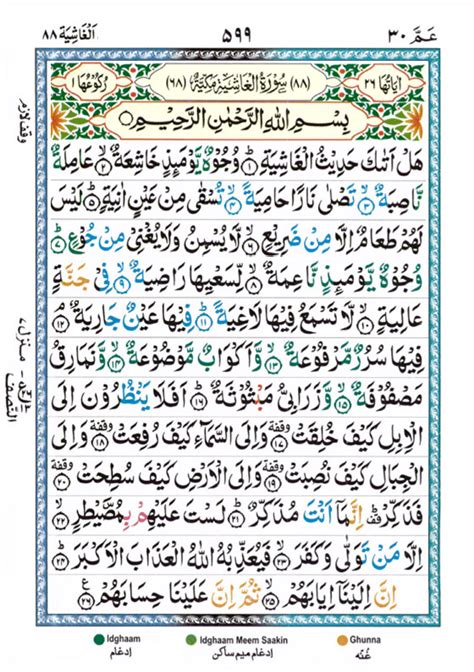 اَلْغَاشِيَة ٨٨
٥٩٩
عَمَّ ٣٠
اٰيَاتُهَا ٢٦
(٨٨) سُوْرَةُ الْغَاشِيَةِ مَكِّيَّةٌ (٦٨)
رُكُوْعُهَا ١
بِسْمِ اللّٰهِ الرَّحْمٰنِ الرَّحِيْمِ
هَلْ اَتٰىكَ حَدِيْثُ الْغَاشِيَةِ ١ وُجُوْهٌ يَّوْمَىِٕذٍ خَاشِعَةٌ ٢ عَامِلَةٌ
نَّاصِبَةٌ ٣ تَصْلٰى نَارًا حَامِيَةً ٤ تُسْقٰى مِنْ عَيْنٍ اٰنِيَةٍ ٥ لَيْسَ
لَهُمْ طَعَامٌ اِلَّا مِنْ ضَرِيْعٍ ٦ لَّا يُسْمِنُ وَلَا يُغْنِيْ مِنْ جُوْعٍ ٧
وُجُوْهٌ يَّوْمَىِٕذٍ نَّاعِمَةٌ ٨ لِّسَعْيِهَا رَاضِيَةٌ ٩ فِيْ جَنَّةٍ
عَالِيَةٍ ١٠ لَّا تَسْمَعُ فِيْهَا لَاغِيَةً ١١ فِيْهَا عَيْنٌ جَارِيَةٌ ١٢
فِيْهَا سُرُرٌ مَّرْفُوْعَةٌ ١٣ وَّاَكْوَابٌ مَّوْضُوْعَةٌ ١٤ وَّنَمَارِقُ
مَصْفُوْفَةٌ ١٥ وَّزَرَابِيُّ مَبْثُوْثَةٌ ١٦ اَفَلَا يَنْظُرُوْنَ اِلَى
الْاِبِلِ كَيْفَ خُلِقَتْ ١٧ وَاِلَى السَّمَآءِ كَيْفَ رُفِعَتْ ١٨ وقفة وَاِلَى
الْجِبَالِ كَيْفَ نُصِبَتْ ١٩ وقفة وَاِلَى الْاَرْضِ كَيْفَ سُطِحَتْ ٢٠ وقفة
فَذَكِّرْ اِنَّمَاۤ اَنْتَ مُذَكِّرٌ ٢١ لَسْتَ عَلَيْهِمْ بِمُصَۜيْطِرٍ ٢٢
اِلَّا مَنْ تَوَلّٰى وَكَفَرَ ٢٣ فَيُعَذِّبُهُ اللّٰهُ الْعَذَابَ الْاَكْبَرَ ٢٤
اِنَّ اِلَيْنَاۤ اِيَابَهُمْ ٢٥ ثُمَّ اِنَّ عَلَيْنَا حِسَابَهُمْ ٢٦
وقف لازم
منزل ٧
النصف
Idghaam
ادغام
Idghaam Meem Saakin
ادغام میم ساکن
Ghunna
غُنّه